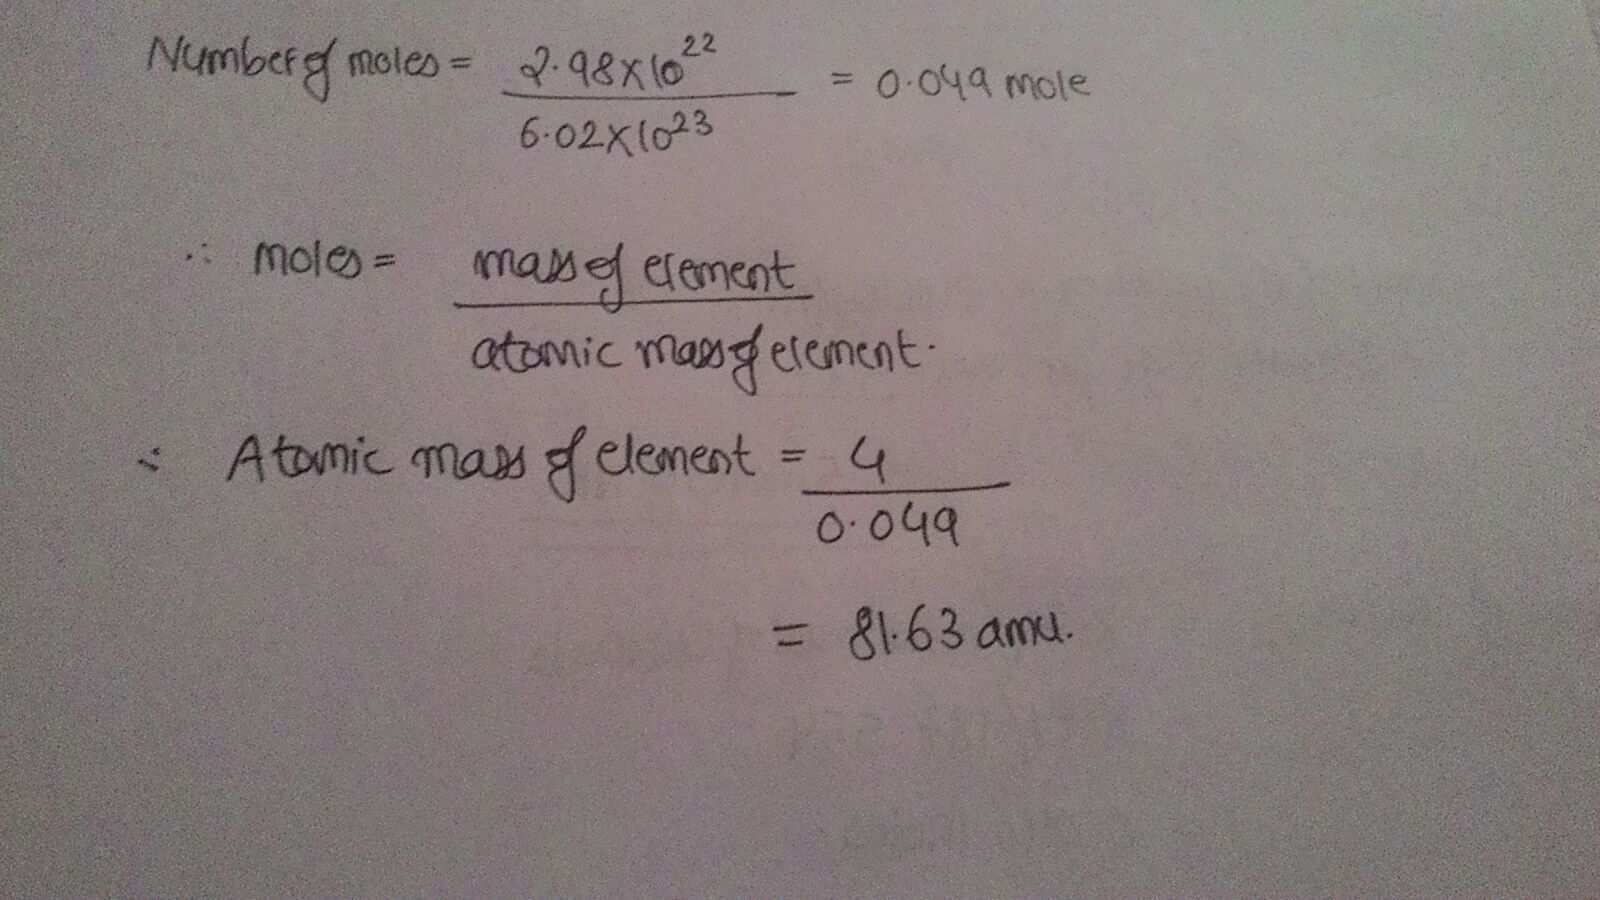 Number of moles = 2.98×10²² / 6.02×10²³ = 0.049 mole
∴ moles = mass of element / atomic mass of element.
∴ Atomic mass of element = 4 / 0.049
= 81.63 amu.